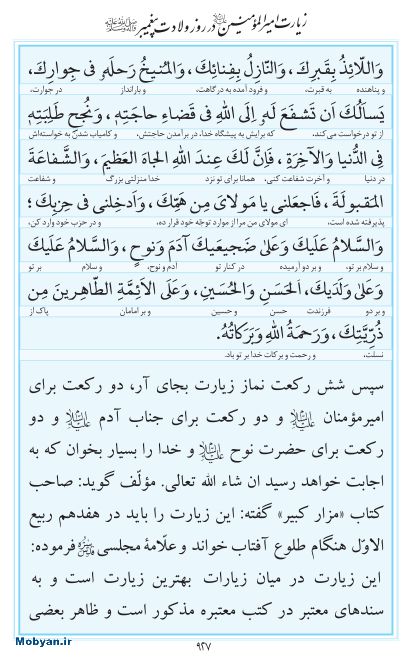 زیارت امیرالمؤمنین علیه‌السلام در روز ولادت پیغمبر صلی‌الله‌علیه‌وآله
وَاللّائِذُ بِقَبرِكَ، وَالنّازِلُ بِفِنائِكَ، وَالمُنيخُ رَحلَهُ فى جِوارِكَ،
و پناهنده به قبرت، و فرود آمده به درگاهت، و بارانداز در جوارت،
يَسأَلُكَ اَن تَشفَعَ لَهُ اِلَى اللهِ فى قَضاءِ حاجَتِهِ، وَنُجحِ طَلِبَتِهِ
از تو درخواست می‌کند، که برایش به پیشگاه خدا، در برآمدن حاجتش، و کامیاب شدن به خواسته‌اش
فِى الدُّنيا وَالآخِرَةِ، فَاِنَّ لَكَ عِندَ اللهِ الجاهَ العَظيمَ، وَالشَّفاعَةَ
در دنیا و آخرت شفاعت کنی، همانا برای تو نزد خدا منزلتی بزرگ و شفاعت
المَقبولَةَ، فَاجعَلنى يا مَولاىَ مِن هَمِّكَ، وَاَدخِلنى فى حِزبِكَ؛
پذیرفته شده است، ای مولای من مرا از موارد توجّه خود قرار ده، و در حزب خود وارد کن،
وَالسَّلامُ عَلَيكَ وَعَلىٰ ضَجيعَيكَ آدَمَ وَنوحٍ، وَالسَّلامُ عَلَيكَ
و سلام بر تو، و بر دو آرمیده در کنار تو آدم و نوح، و سلام بر تو
وَعَلىٰ وَلَدَيكَ، اَلحَسَنِ وَالحُسَينِ، وَعَلَى الاَئِمَّةِ الطّاهِرينَ مِن
و بر دو فرزندت حسن و حسین و بر امامان پاک از
ذُرِّيَّتِكَ، وَرَحمَةُ اللهِ وَبَرَكاتُهُ.
نسلت، و رحمت و برکات خدا بر تو باد.
سپس شش رکعت نماز زیارت بجای آر، دو رکعت برای
امیرمؤمنان علیه‌السلام و دو رکعت برای جناب آدم علیه‌السلام و دو
رکعت برای حضرت نوح علیه‌السلام و خدا را بسیار بخوان که به
اجابت خواهد رسید ان شاء الله تعالی. مؤلّف گوید: صاحب
کتاب «مزار کبیر» گفته: این زیارت را باید در هفدهم ربیع
الاوّل هنگام طلوع آفتاب خواند و علاّمۀ مجلسی قدس‌سره فرموده:
این زیارت در میان زیارات بهترین زیارت است و به
سندهای معتبر در کتب معتبره مذکور است و ظاهر بعضی
۹۲۷
Mobyan.ir